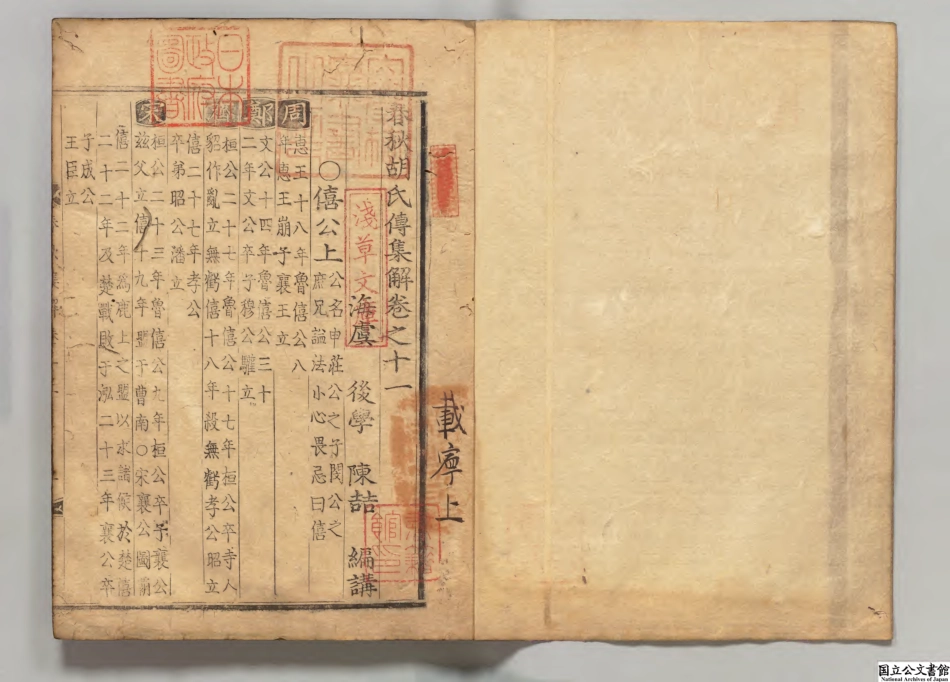 載
上
春秋胡氏傳集解卷之十一
海虞 後學 陳喆 編講
○僖公上
公名申莊公之子閔公之
庶兄謚法小心畏忌曰僖
周
惠王十八年魯僖公八
年惠王崩子襄王立
鄭
文公十四年魯僖公三十
二年文公卒子穆公驩立
桓公二十七年魯僖公十七年桓公卒寺人
貂作亂立無虧僖十八年殺無虧孝公昭立
僖二十七年孝公
卒弟昭公潘立
宋
桓公二十三年魯僖公九年桓公卒子襄公
茲父立僖十九年盟于曹南○宋襄公圖霸
僖二十二年為鹿上之盟以水諸侯於楚僖
二十二年及楚戰敗于泓二十三年襄公卒
子成公
王臣立
日本
政府
圖書
淺草文庫
国立公文書館
National Archives of Japan